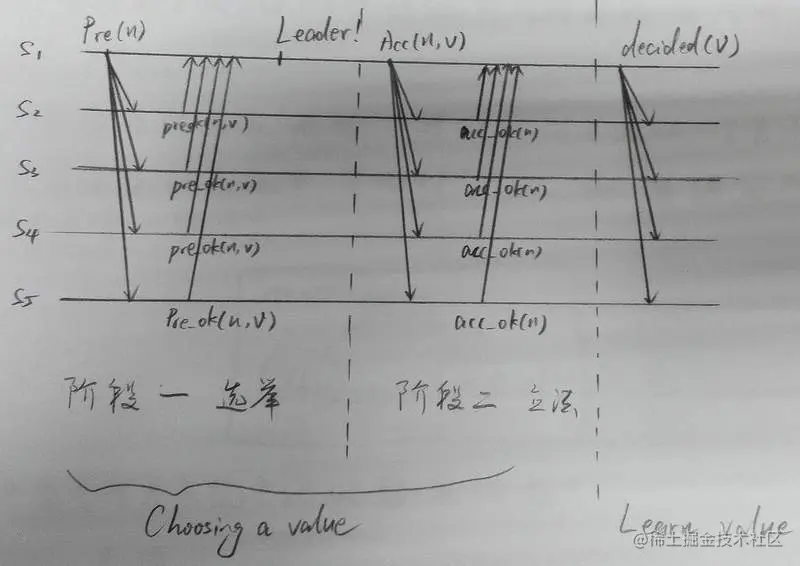 Pre(n) Leader! Acc(n,v) decided(v)
S1
S2
pre_ok(n,v) acc_ok(n)
S3
pre_ok(n,v) acc_ok(n)
S4
pre_ok(n,v) acc_ok(n)
S5
Pre_ok(n,v) acc_ok(n)
阶段一 选举 阶段二 立法
Choosing a value Learn value
@稀土掘金技术社区